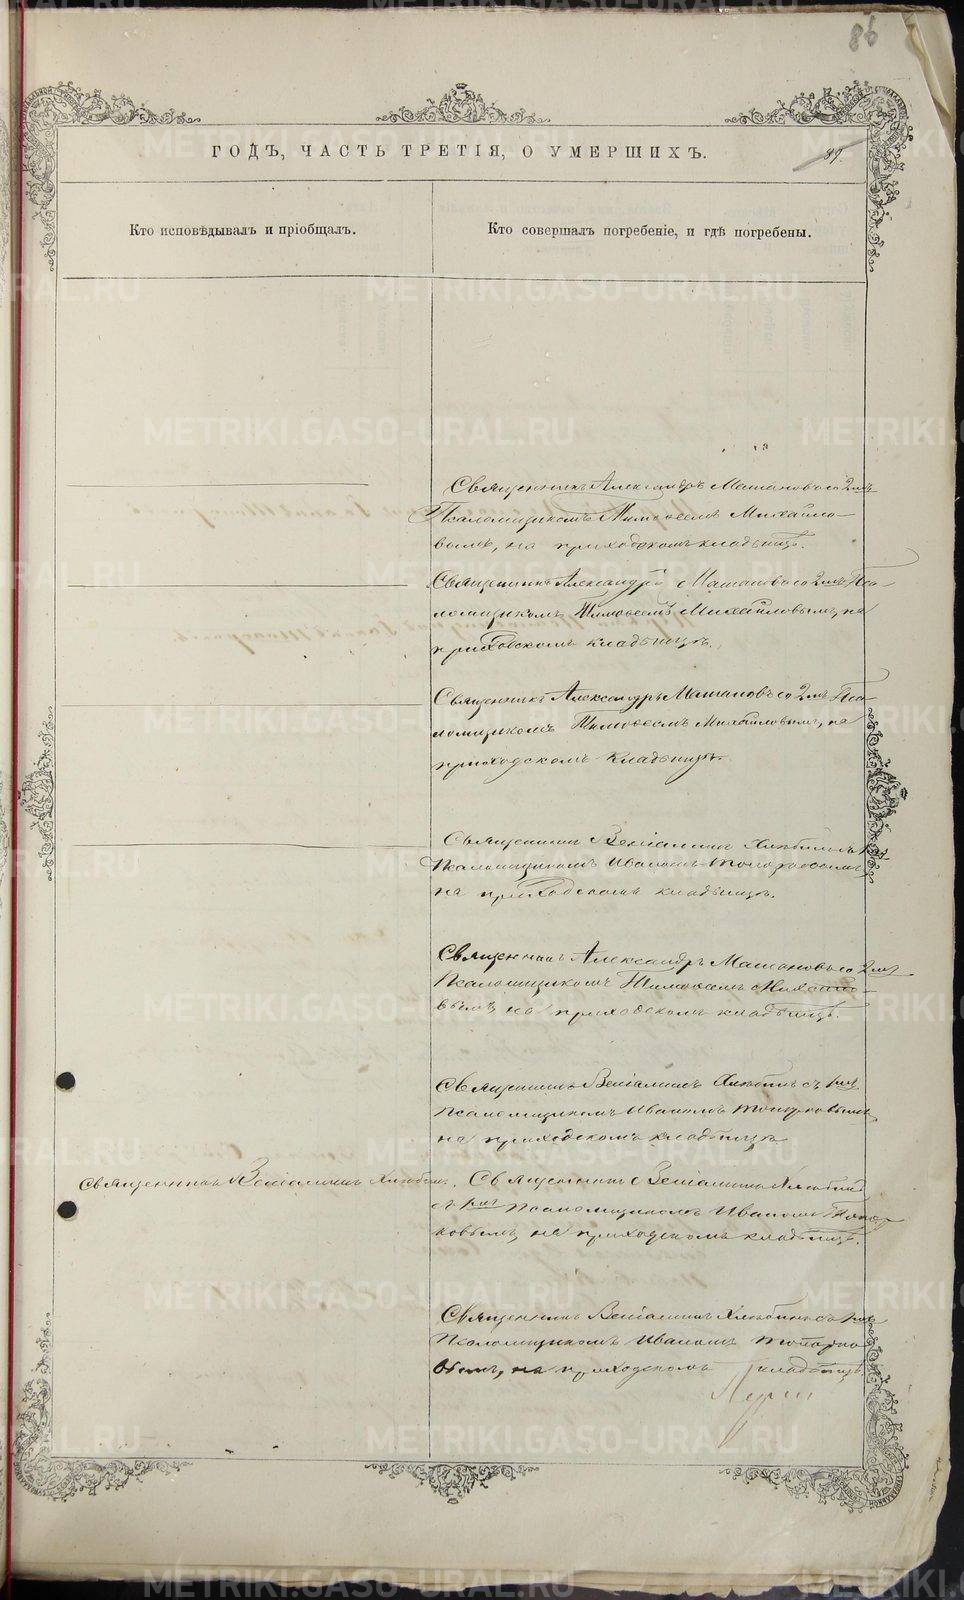 86
ГОДЪ, ЧАСТЬ ТРЕТІЯ, О УМЕРШИХЪ.
89.
Кто исповѣдывалъ и пріобщалъ.
Кто совершалъ погребеніе, и гдѣ погребены.
Священникъ Александръ Машановъ со 2мъ
Псаломщикомъ Тимофеемъ Михайло-
вымъ, на приходскомъ кладбищѣ.
Священникъ Александръ Машановъ со 2мъ Пса-
ломщикомъ Тимофеемъ Михайловымъ, на
приходскомъ кладбищѣ.
Священникъ Александръ Машановъ со 2мъ Пса-
ломщикомъ Тимофеемъ Михайловымъ, на
приходскомъ кладбищѣ.
Священникъ Веніаминъ Хлѣбинъ
Псаломщикомъ Иваномъ Топорковымъ
на приходскомъ кладбищѣ.
Священникъ Александръ Машановъ со 2мъ
Псаломщикомъ Тимофеемъ Михайло-
вымъ на приходскомъ кладбищѣ.
Священникъ Веніаминъ Хлѣбинъ съ 1мъ
Псаломщикомъ Иваномъ Топорковымъ
на приходскомъ кладбищѣ
Священникъ Веніаминъ Хлѣбинъ.
Священникъ Веніаминъ Хлѣбинъ
съ 1мъ псаломщикомъ Иваномъ Топор-
ковымъ, на приходскомъ кладбищѣ.
Священникъ Веніаминъ Хлѣбинъ съ 1мъ
Псаломщикомъ Иваномъ Топорко-
вымъ, на приходскомъ кладбищѣ.
METRIKI.GASO-URAL.RU